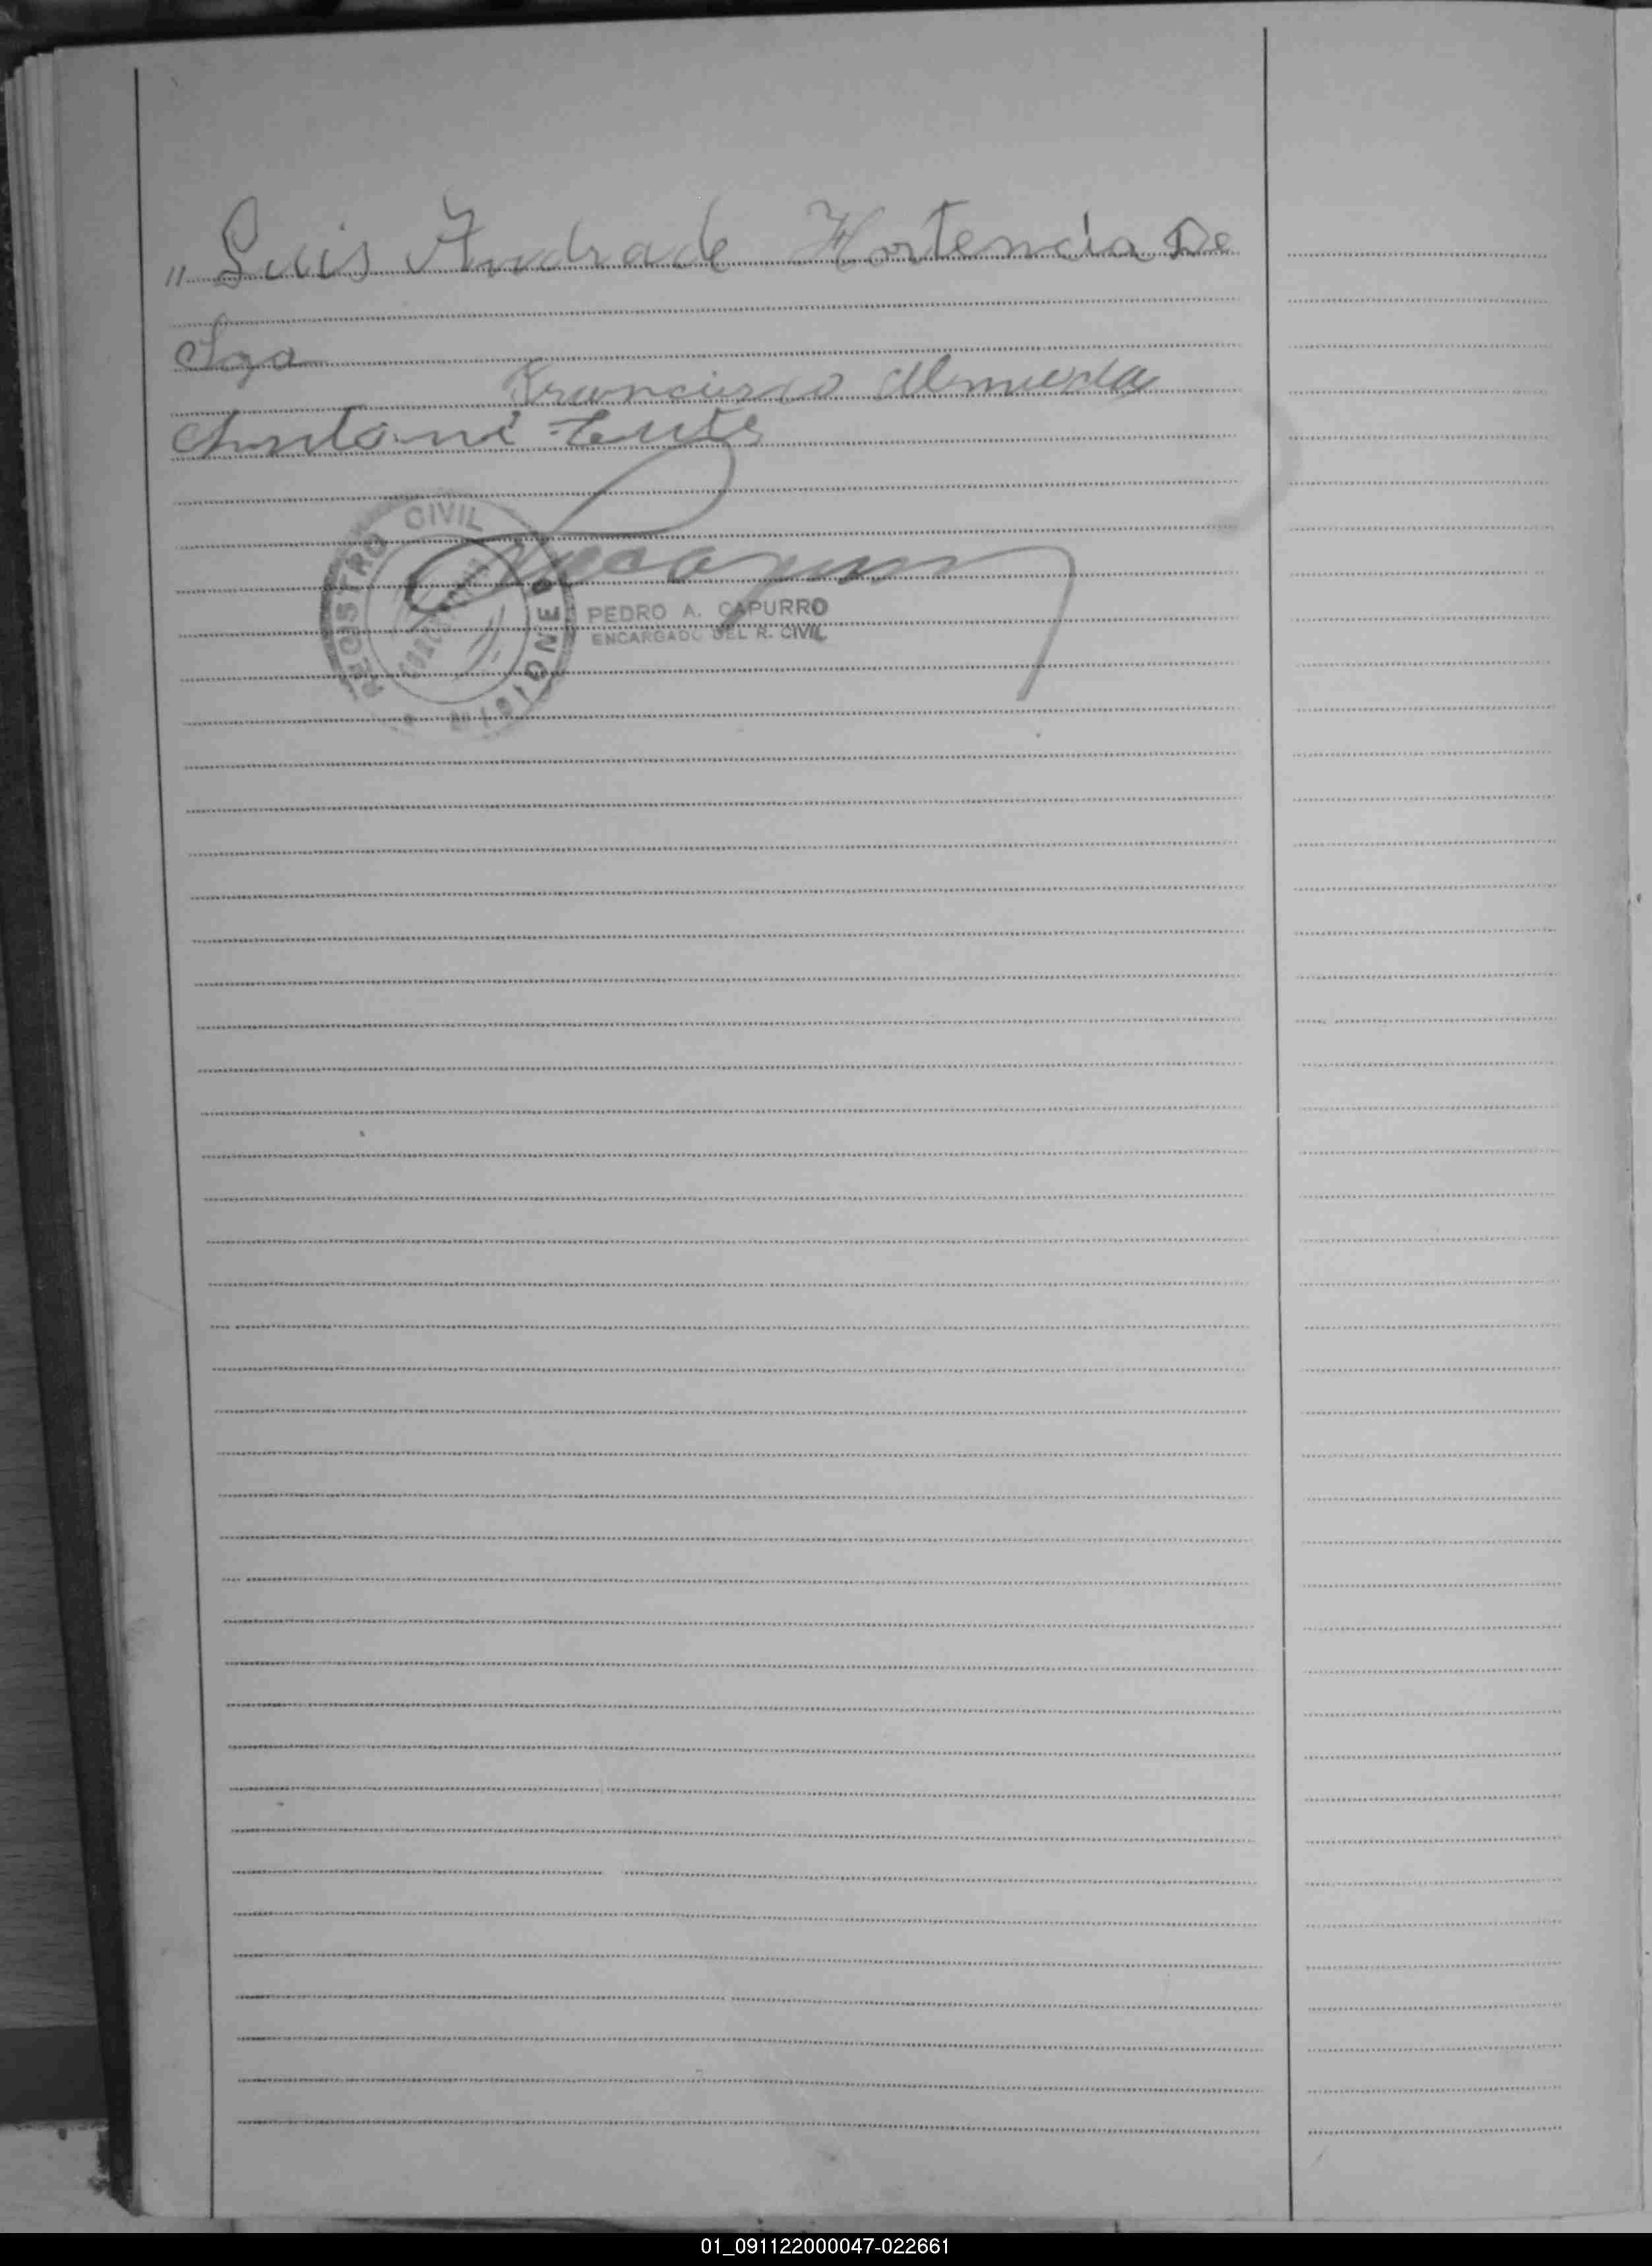 " Luis Andrade Hortencia De
Soza
Francisco Almueda
Antoni
REGISTRO CIVIL
MISIONES
PEDRO A. CAPURRO
ENCARGADO DEL R. CIVIL
01_091122000047-022661